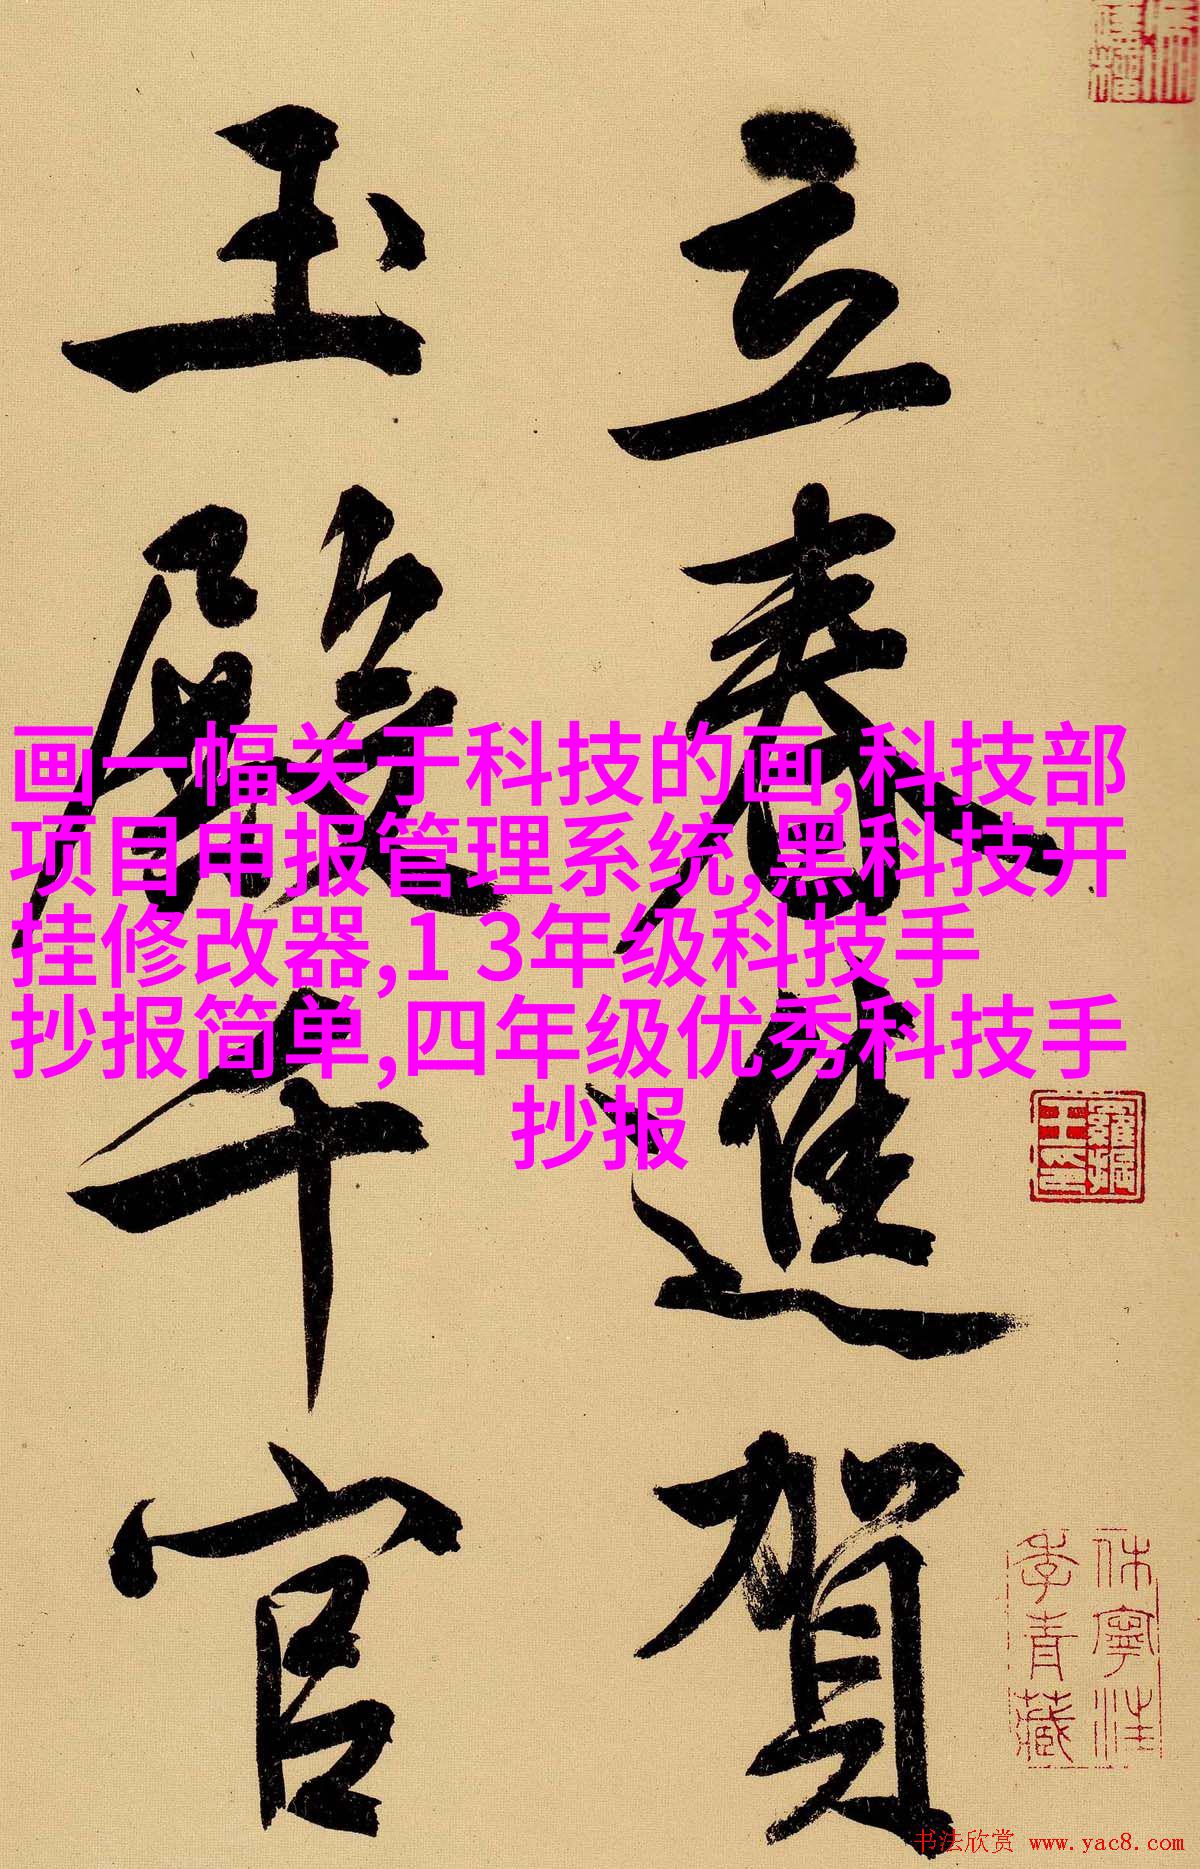 立春進賀
玉殿千官
画一幅关于科技的画,科技部
项目申报管理系统,黑科技开
挂修改器,1 3年级科技手
抄报简单,四年级优秀科技手
抄报
休寧汪
季青藏
书法欣赏 www.yac8.com